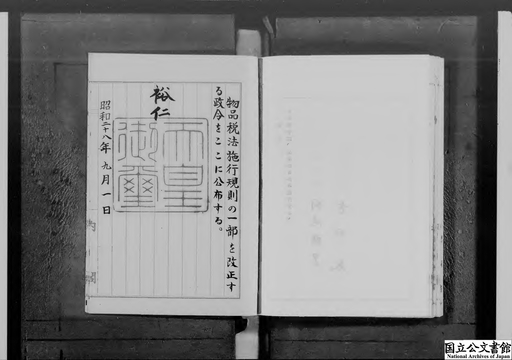 物品税法施行規則の一部を改正す
る政令をここに公布する。
裕仁
天皇
御璽
昭和二十八年九月一日
内閣
国立公文書館
National Archives of Japan